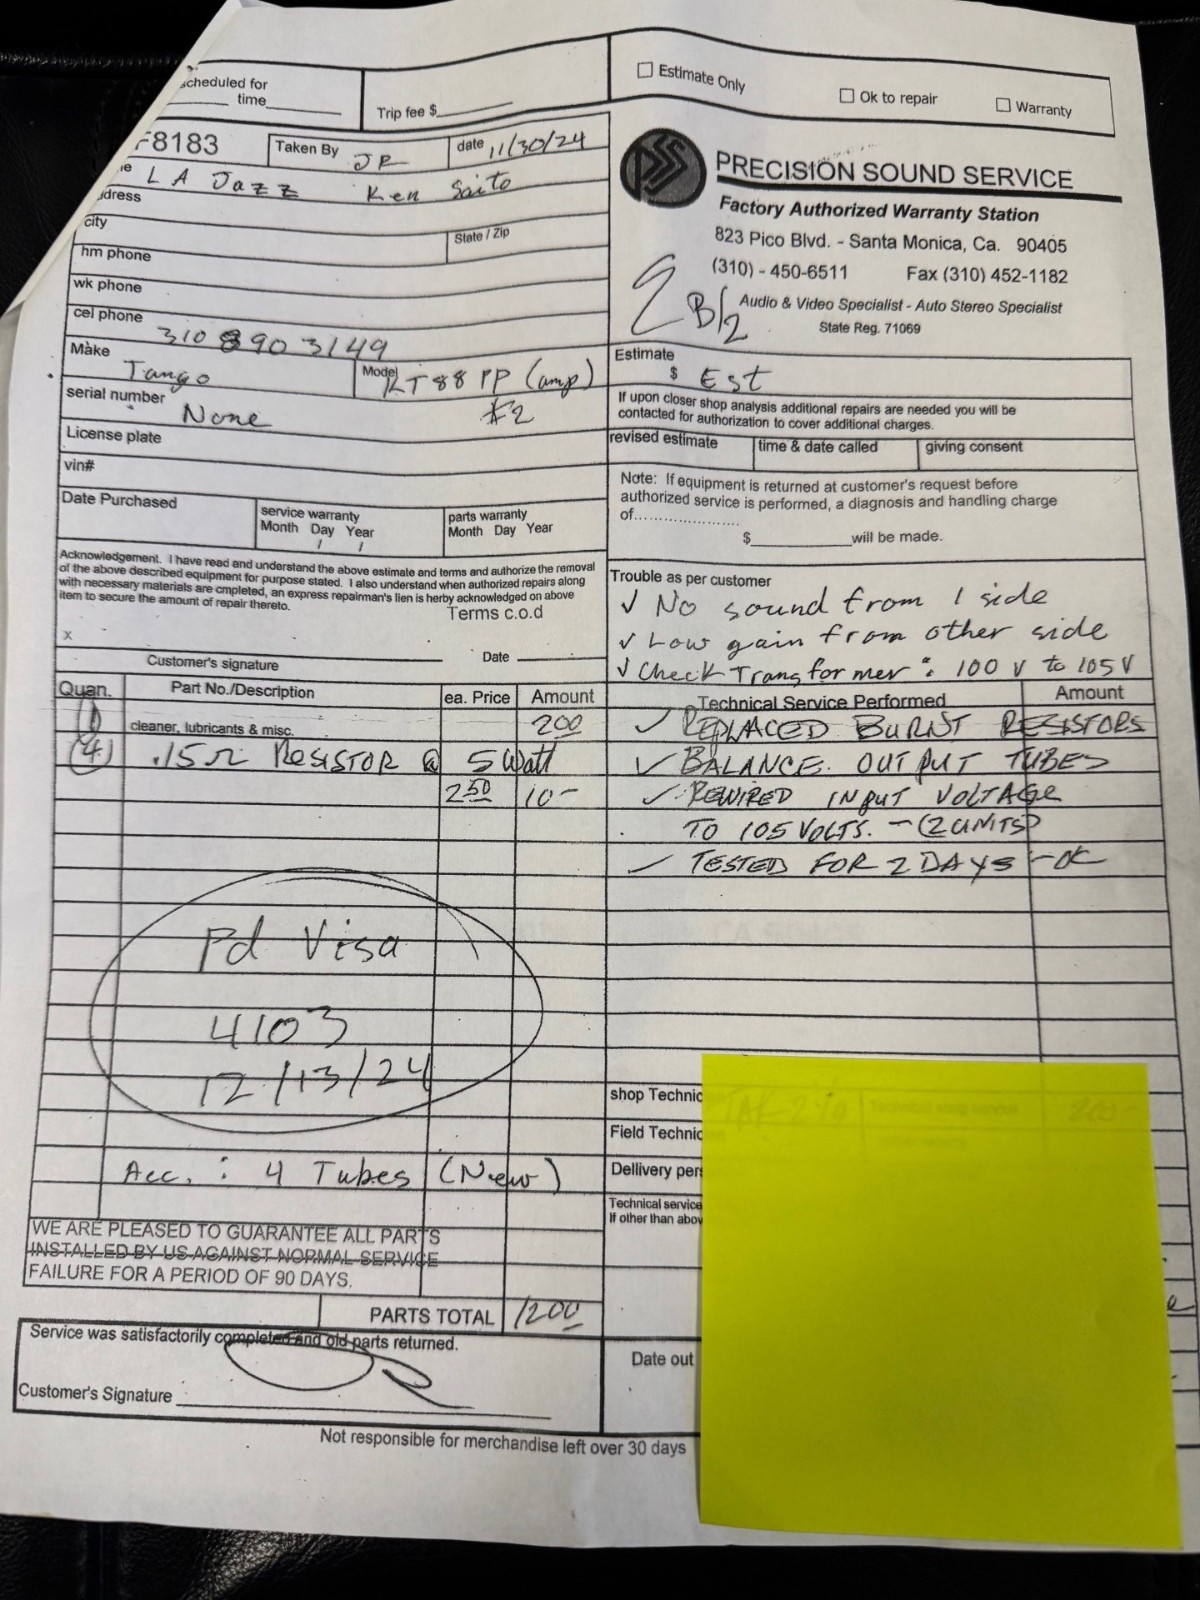 scheduled for
time
Trip fee $
Estimate Only
Ok to repair
Warranty
F8183
Taken By JR
date 11/30/24
LA Jazz Ken Saito
city
State / Zip
hm phone
wk phone
cel phone 310 890 3149
Make Tango
Model KT88 PP (amp)
#2
serial number None
License plate
vin#
Date Purchased
service warranty
Month Day Year
/ /
parts warranty
Month Day Year
Acknowledgement. I have read and understand the above estimate and terms and authorize the removal
of the above described equipment for purpose stated. I also understand when authorized repairs along
with necessary materials are cmpleted, an express repairman's lien is herby acknowledged on above
item to secure the amount of repair thereto.
Terms c.o.d
x
Customer's signature
Date
PSS
PRECISION SOUND SERVICE
Factory Authorized Warranty Station
823 Pico Blvd. - Santa Monica, Ca. 90405
(310) - 450-6511 Fax (310) 452-1182
Audio & Video Specialist - Auto Stereo Specialist
State Reg. 71069
B/2
Estimate
$ Est
If upon closer shop analysis additional repairs are needed you will be
contacted for authorization to cover additional charges.
revised estimate
time & date called
giving consent
Note: If equipment is returned at customer's request before
authorized service is performed, a diagnosis and handling charge
of.....................
$ will be made.
Trouble as per customer
✓ No sound from 1 side
✓ Low gain from other side
✓ Check Transformer : 100 V to 105 V
Quan.
Part No./Description
ea. Price
Amount
cleaner, lubricants & misc. 200
(4) .15Ω RESISTOR @ 5 Watt
2 50 10-
Technical Service Performed
Amount
✓ REPLACED BURNT RESISTORS
✓ BALANCE OUTPUT TUBES
✓ REWIRED INPUT VOLTAGE
TO 105 VOLTS. - (2 UNITS)
✓ TESTED FOR 2 DAYS - OK
Pd Visa
4103
12/13/24
Acc. : 4 Tubes (New)
WE ARE PLEASED TO GUARANTEE ALL PARTS
INSTALLED BY US AGAINST NORMAL SERVICE
FAILURE FOR A PERIOD OF 90 DAYS.
PARTS TOTAL 1200
Service was satisfactorily completed and old parts returned.
Customer's Signature
Not responsible for merchandise left over 30 days
shop Technic
Field Technic
Dellivery pers
Technical service
If other than abov
Date out